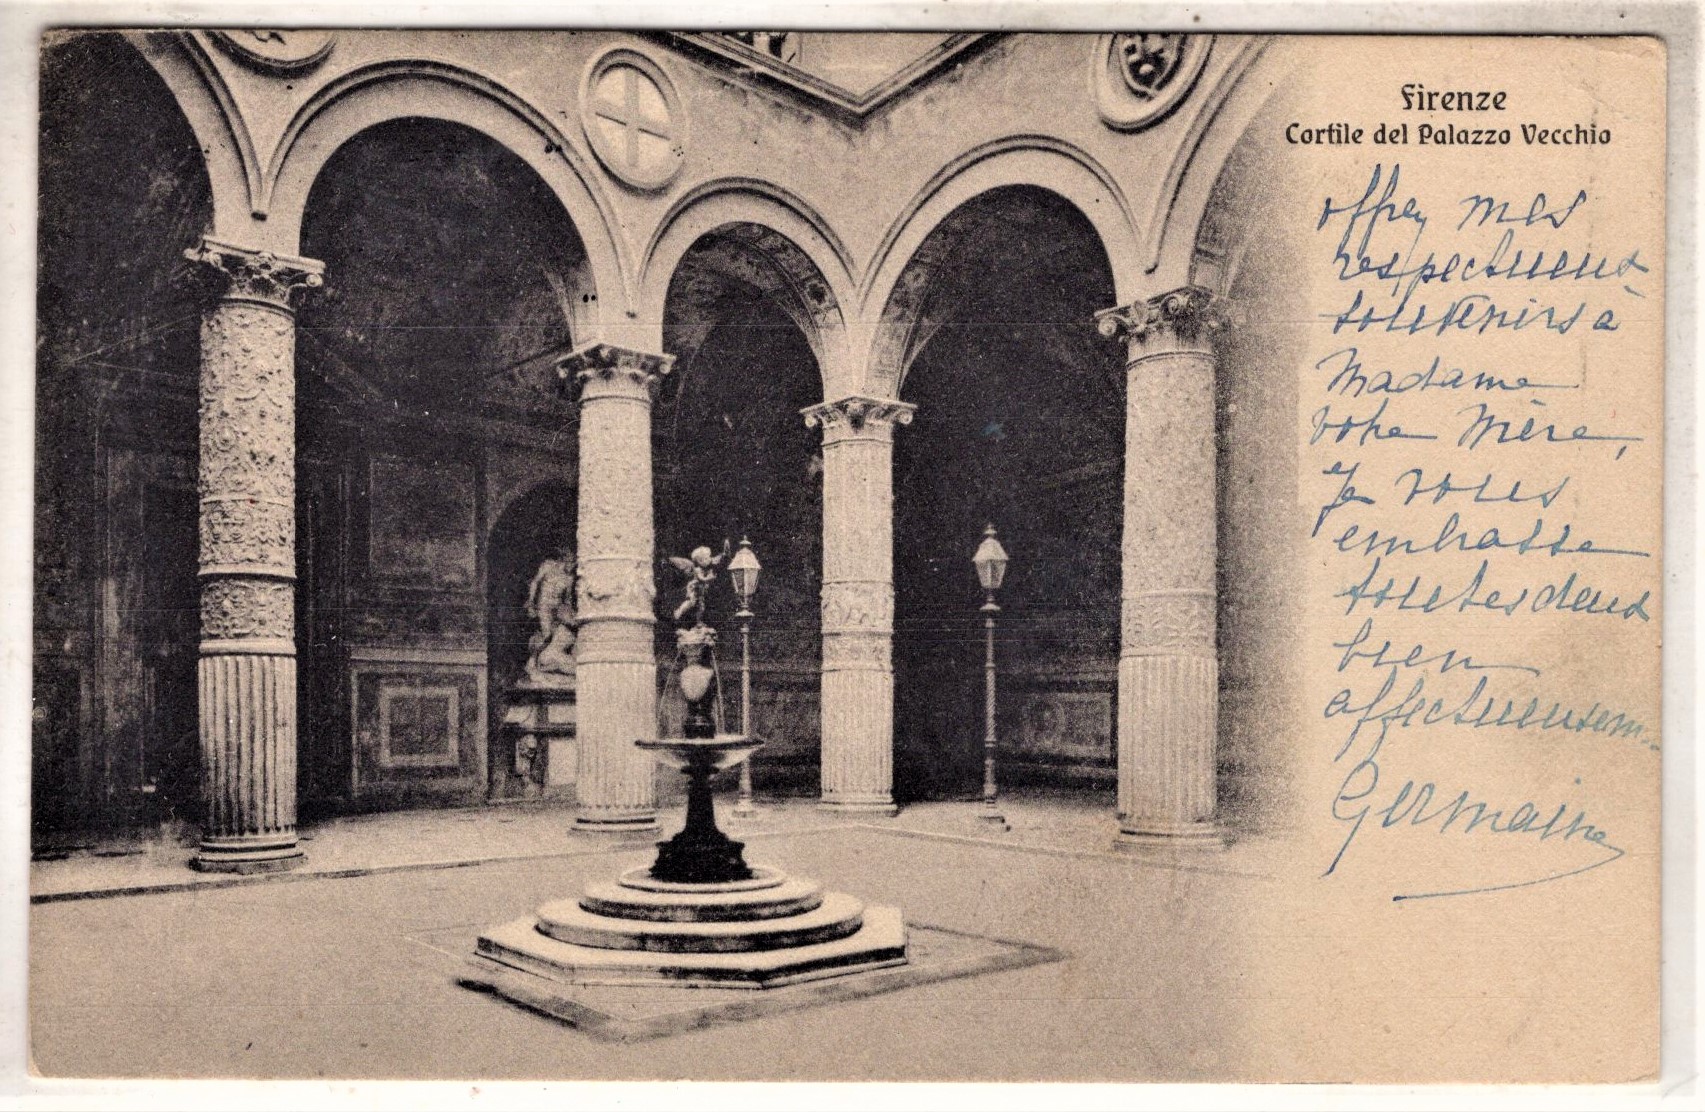 Firenze
Cortile del Palazzo Vecchio
offrez mes
respectueux
souvenirs à
Madame
votre Mère,
Je vous
embrasse
toutes deux
bien
affectueusem..
Germaine